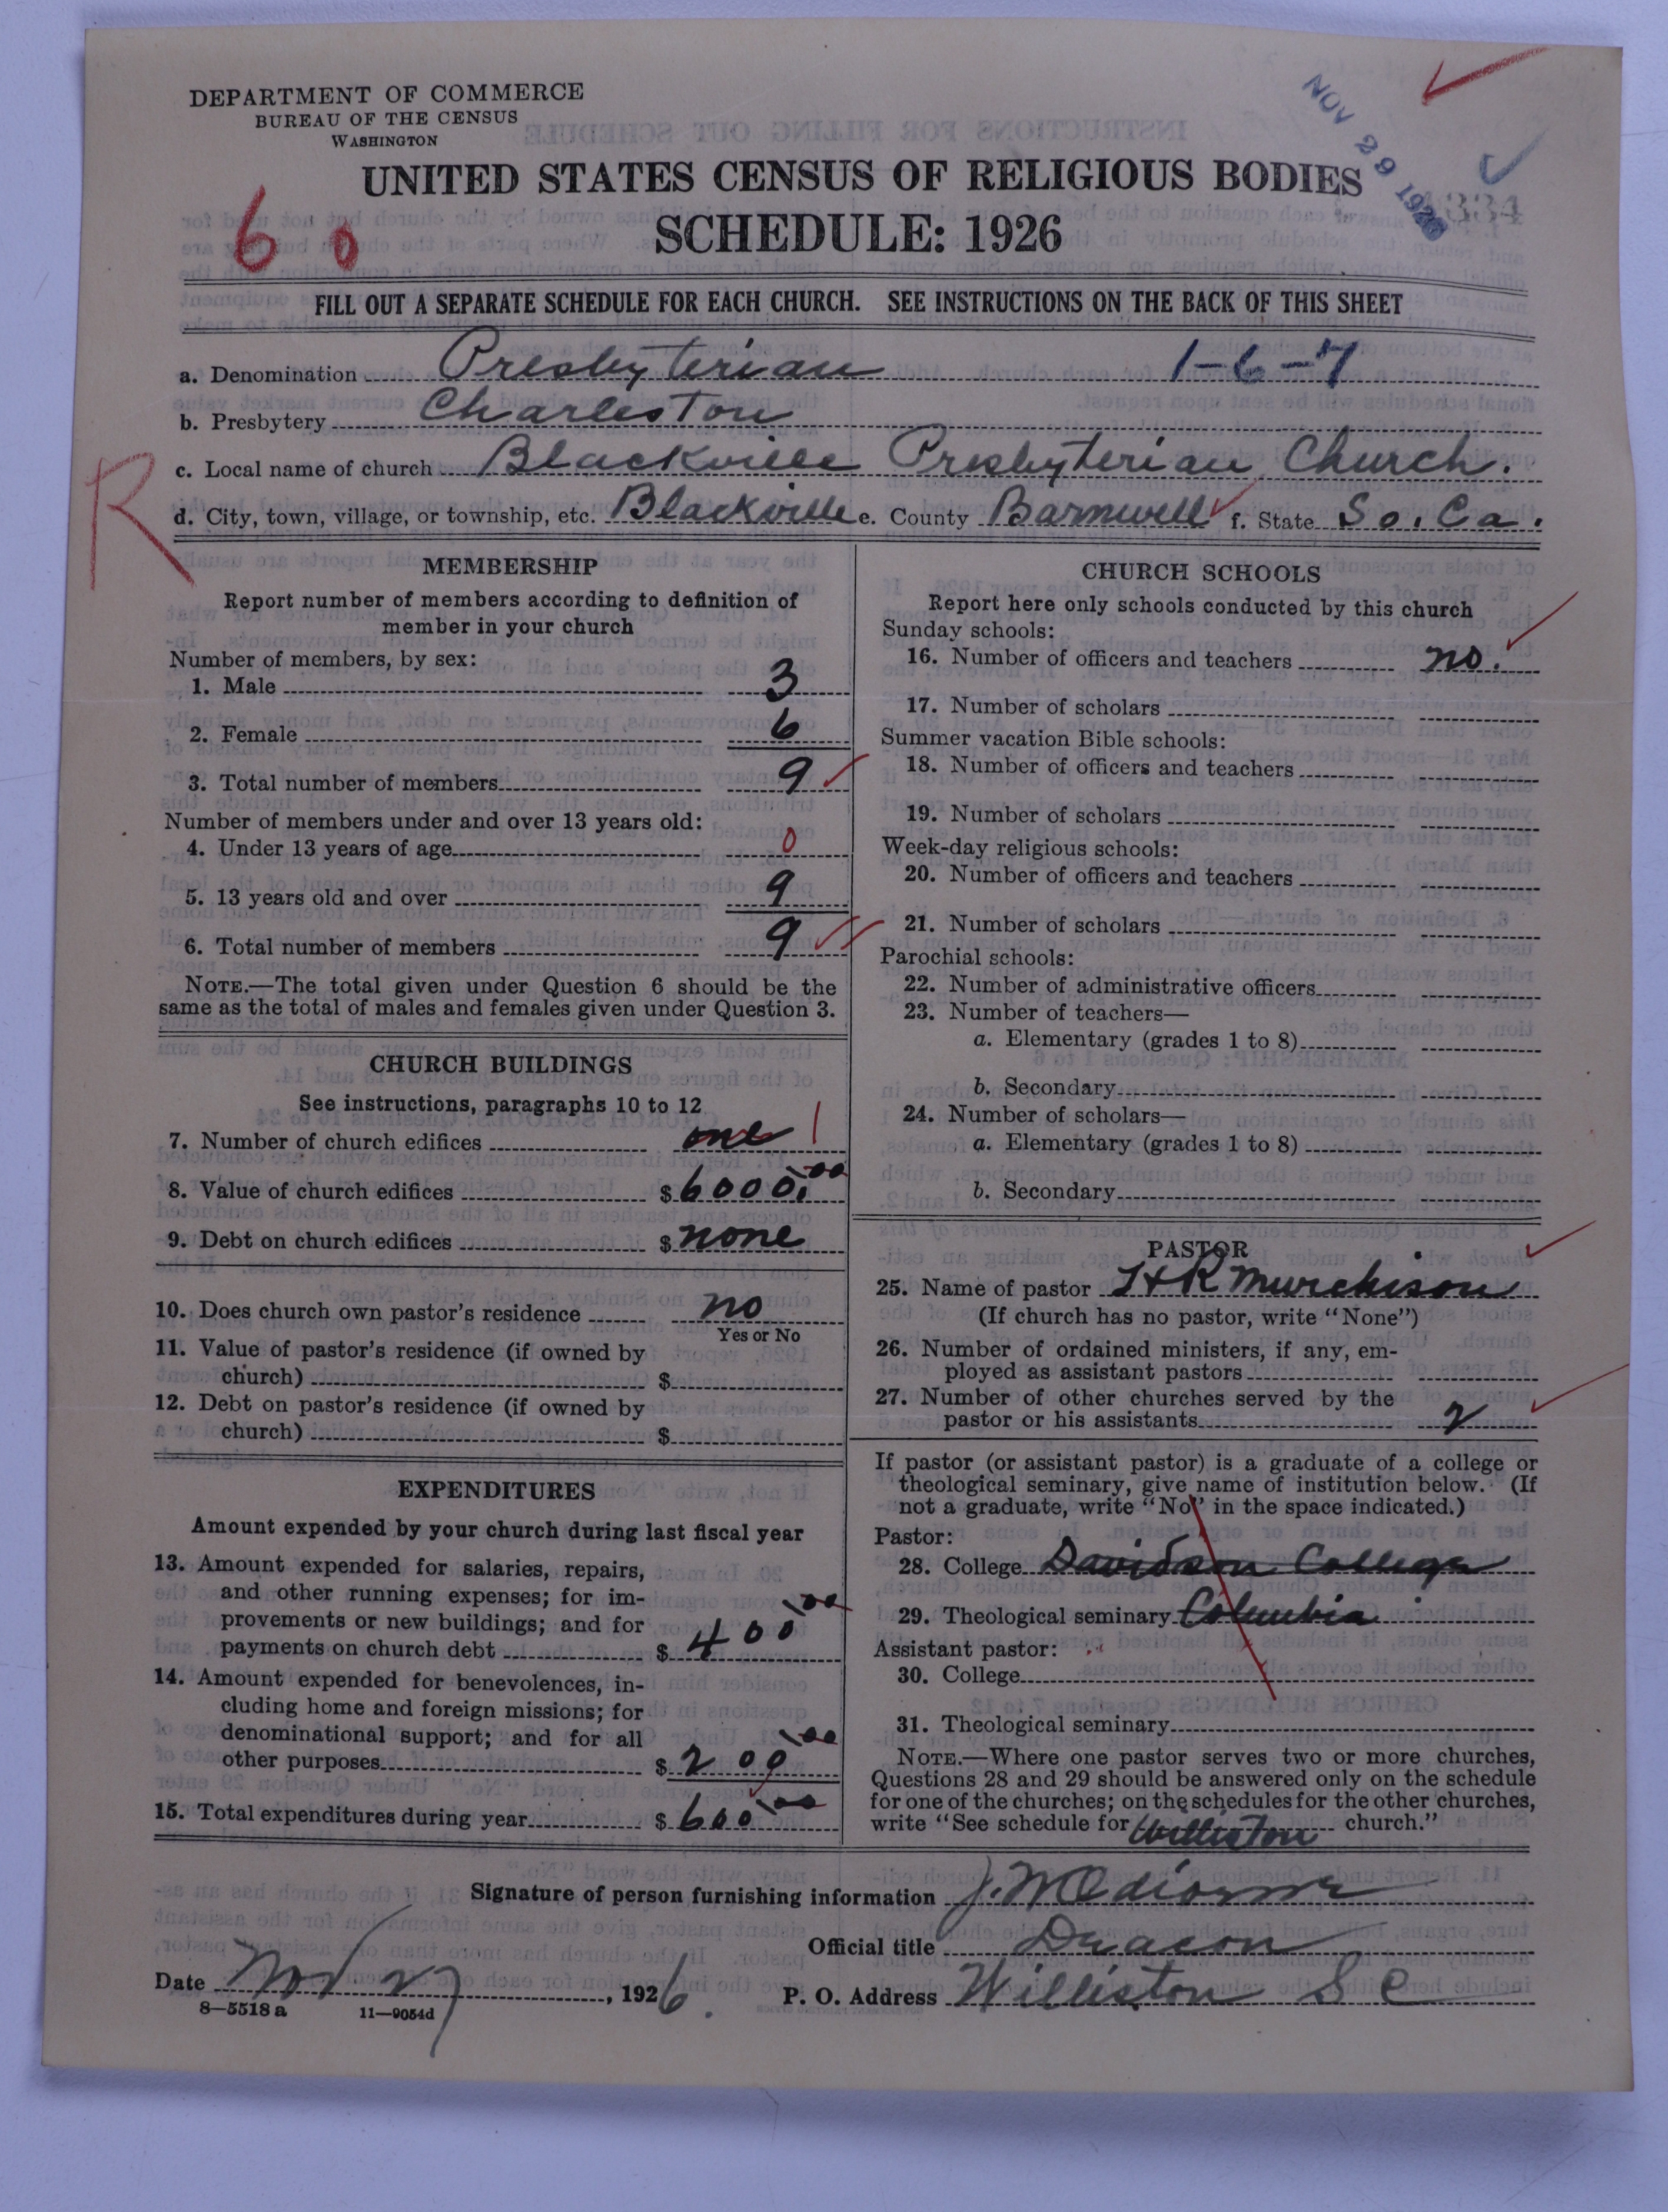 DEPARTMENT OF COMMERCE
BUREAU OF THE CENSUS
WASHINGTON
NOV 29 1926
UNITED STATES CENSUS OF RELIGIOUS BODIES
SCHEDULE: 1926
60
FILL OUT A SEPARATE SCHEDULE FOR EACH CHURCH. SEE INSTRUCTIONS ON THE BACK OF THIS SHEET
a. Denomination Presbyterian 1-6-7
b. Presbytery Charleston
c. Local name of church Blackville Presbyterian Church.
R
d. City, town, village, or township, etc. Blackville e. County Barnwell f. State So. Ca.
MEMBERSHIP
Report number of members according to definition of
member in your church
Number of members, by sex:
1. Male 3
2. Female 6
3. Total number of members 9
Number of members under and over 13 years old:
4. Under 13 years of age 0
5. 13 years old and over 9
6. Total number of members 9
NOTE.—The total given under Question 6 should be the
same as the total of males and females given under Question 3.
CHURCH BUILDINGS
See instructions, paragraphs 10 to 12
7. Number of church edifices one 1
8. Value of church edifices $ 6000.00
9. Debt on church edifices $ none
10. Does church own pastor's residence no
Yes or No
11. Value of pastor's residence (if owned by
church) $
12. Debt on pastor's residence (if owned by
church) $
EXPENDITURES
Amount expended by your church during last fiscal year
13. Amount expended for salaries, repairs,
and other running expenses; for im-
provements or new buildings; and for
payments on church debt $ 400 00
14. Amount expended for benevolences, in-
cluding home and foreign missions; for
denominational support; and for all
other purposes $ 200 00
15. Total expenditures during year $ 600 00
CHURCH SCHOOLS
Report here only schools conducted by this church
Sunday schools:
16. Number of officers and teachers no.
17. Number of scholars
Summer vacation Bible schools:
18. Number of officers and teachers
19. Number of scholars
Week-day religious schools:
20. Number of officers and teachers
21. Number of scholars
Parochial schools:
22. Number of administrative officers
23. Number of teachers—
a. Elementary (grades 1 to 8)
b. Secondary
24. Number of scholars—
a. Elementary (grades 1 to 8)
b. Secondary
PASTOR
25. Name of pastor H R Murchison
(If church has no pastor, write "None")
26. Number of ordained ministers, if any, em-
ployed as assistant pastors
27. Number of other churches served by the
pastor or his assistants 2
If pastor (or assistant pastor) is a graduate of a college or
theological seminary, give name of institution below. (If
not a graduate, write "No" in the space indicated.)
Pastor:
28. College Davidson College
29. Theological seminary Columbia
Assistant pastor:
30. College
31. Theological seminary
NOTE.—Where one pastor serves two or more churches,
Questions 28 and 29 should be answered only on the schedule
for one of the churches; on the schedules for the other churches,
write "See schedule for Williston church."
Signature of person furnishing information J. M Odiorne
Official title Deacon
Date Nov 27, 1926.
P. O. Address Williston S C
8—5518 a 11—9054d